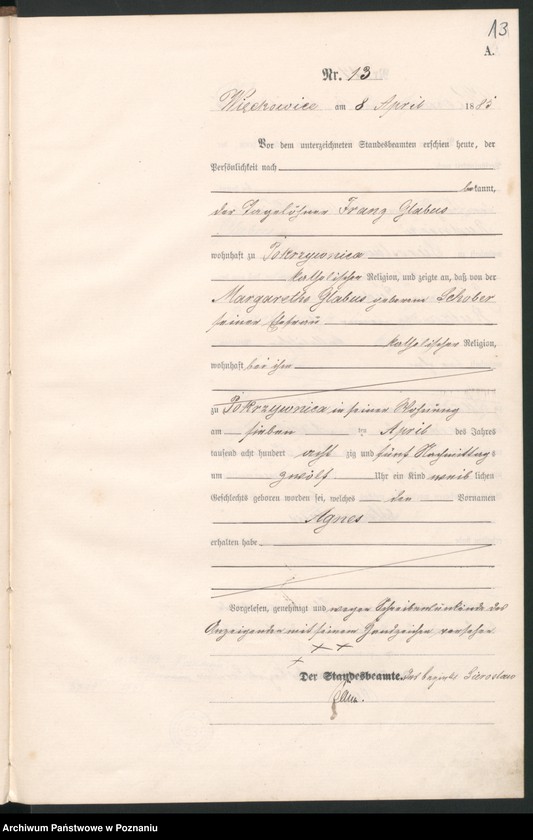 13
A.
Nr. 13
Więckowice am 8 April 1885
Vor dem unterzeichneten Standesbeamten erschien heute, der
Persönlichkeit nach
bekannt,
der Tagelöhner Franz Glabus
wohnhaft zu Pokrzywnica
katholischer Religion, und zeigte an, daß von der
Margarethe Glabus geborene Schober
seiner Ehefrau
katholischer Religion,
wohnhaft bei ihm
zu Pokrzywnica in seiner Wohnung
am sieben ten April des Jahres
tausend acht hundert acht zig und fünf Nachmittags
um zwölf Uhr ein Kind weib lichen
Geschlechts geboren worden sei, welches den Vornamen
Agnes
erhalten habe
Vorgelesen, genehmigt und wegen Schreibensunkunde des
Anzeigenden mit seinem Handzeichen versehen.
+++
Der Standesbeamte. des Bezirks
Archiwum Państwowe w Poznaniu